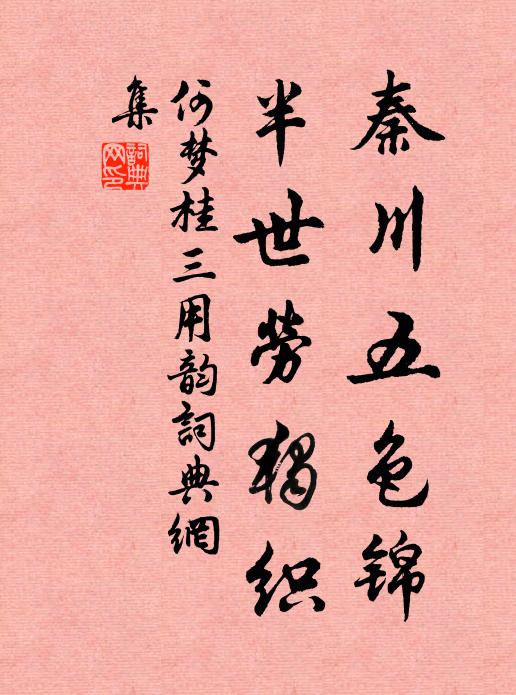 秦川五色锦
半世劳独织
何梦桂三用韵詞典網
集
詞典网印